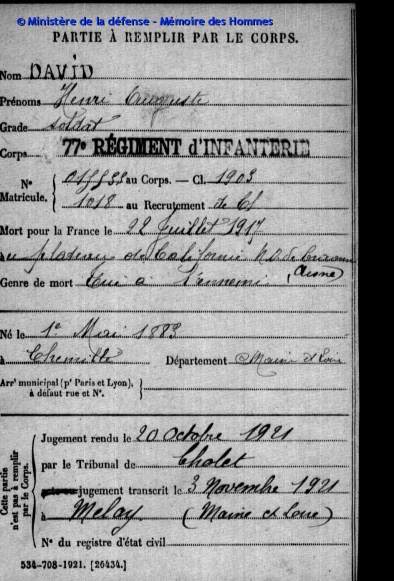 © Ministère de la défense - Mémoire des Hommes
PARTIE À REMPLIR PAR LE CORPS.
Nom DAVID
Prénoms Henri Auguste
Grade soldat
Corps 77e RÉGIMENT d'INFANTERIE
N° au Corps. — Cl. 1903
Matricule. 1018 au Recrutement de
Mort pour la France le 22 Juillet 1917
à plateau de Californie de Craonne
(Aisne)
Genre de mort Tué à l'ennemi
Né le 1er Mai 1883
à Chemillé Département Maine et Loire
Arrt municipal (pr Paris et Lyon),
à défaut rue et N°.
Cette partie
n'est pas à remplir
par le Corps.
Jugement rendu le 20 Octobre 1921
par le Tribunal de Cholet
jugement transcrit le 3 Novembre 1921
à Melay (Maine et Loire)
N° du registre d'état civil
534-708-1921. [26434.]